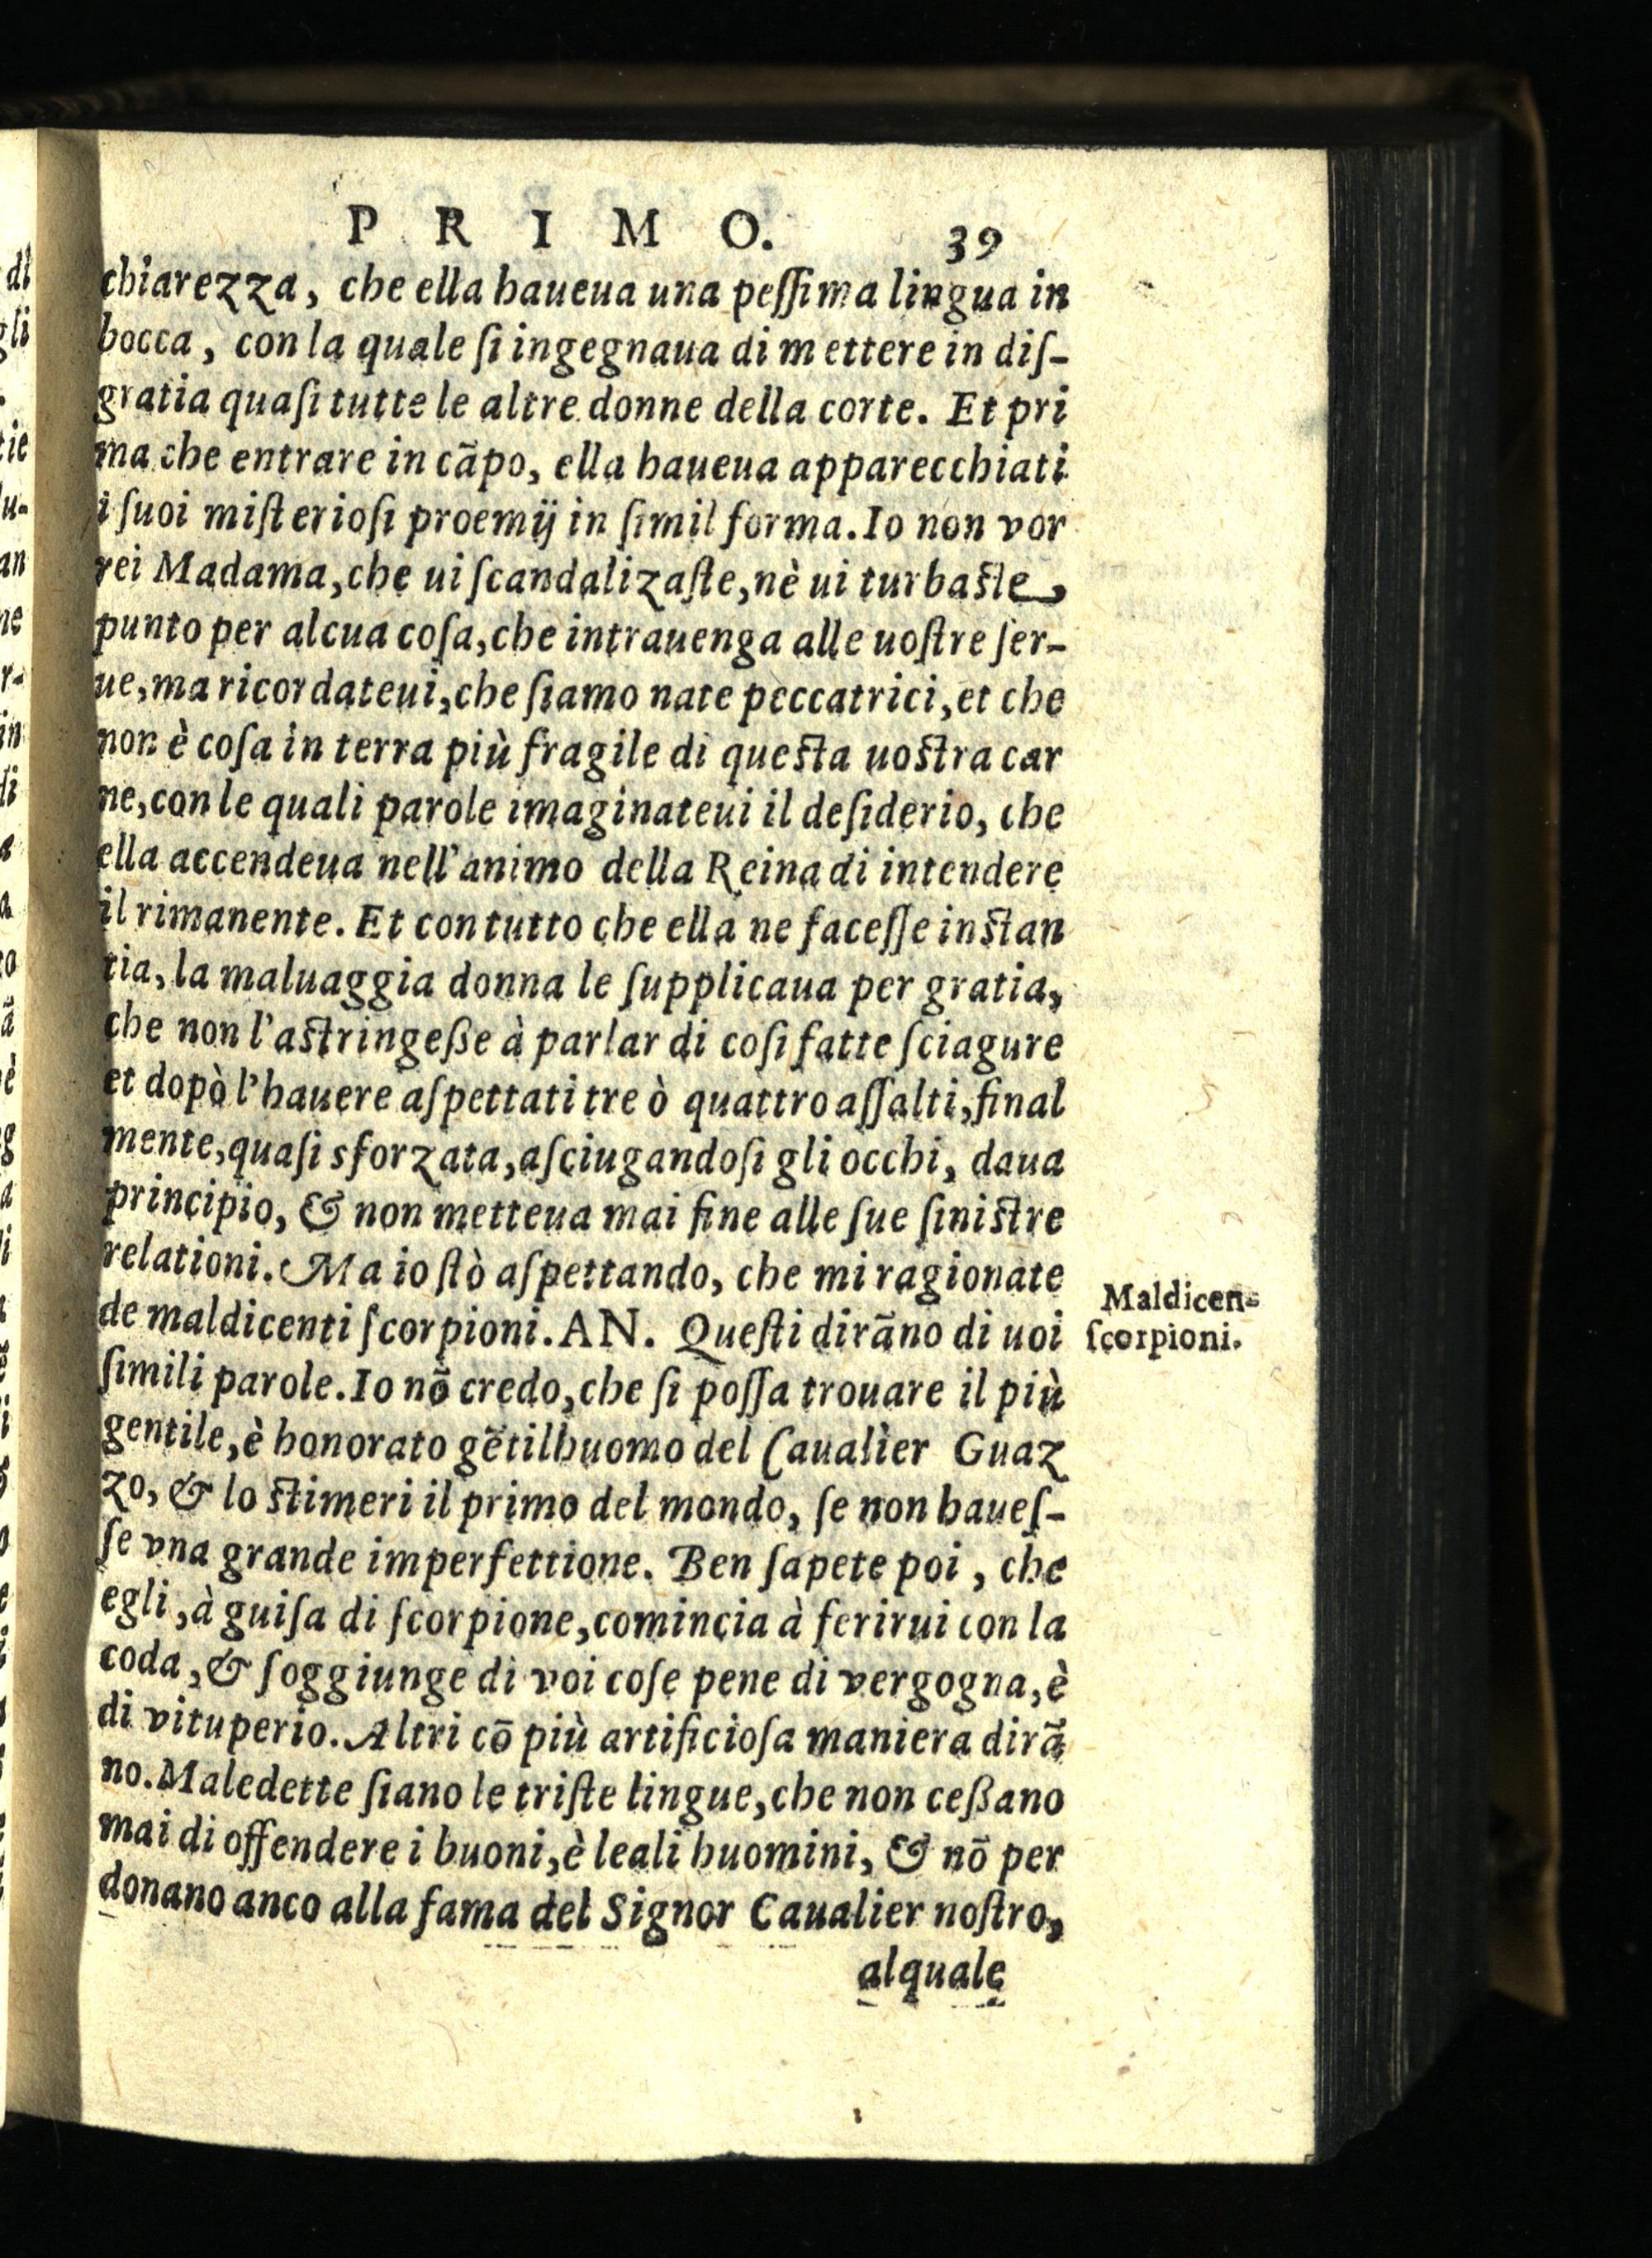 PRIMO. 39
chiarezza, che ella haueua una peſſima lingua in
bocca, con la quale ſi ingegnaua di mettere in diſ-
gratia quaſi tutte le altre donne della corte. Et pri
ma che entrare in cãpo, ella haueua apparecchiati
i ſuoi miſterioſi proemij in ſimil forma. Io non vor
rei Madama, che ui ſcandalizaſte, nè ui turbaſte,
punto per alcua coſa, che intrauenga alle uoſtre ſer-
ue, ma ricordateui, che ſiamo nate peccatrici, et che
non è coſa in terra più fragile di queſta uoſtra car
ne, con le quali parole imaginateui il deſiderio, che
ella accendeua nell'animo della Reina di intendere
il rimanente. Et con tutto che ella ne faceſſe inſtan
tia, la maluaggia donna le ſupplicaua per gratia,
che non l'aſtringeße à parlar di coſi fatte ſciagure
et dopò l'hauere aſpettati tre ò quattro aſſalti, final
mente, quaſi sforzata, aſciugandoſi gli occhi, daua
principio, & non metteua mai fine alle ſue ſiniſtre
relationi. Ma io ſtò aſpettando, che mi ragionate
de maldicenti ſcorpioni. AN. Queſti dirãno di uoi
ſimili parole. Io nõ credo, che ſi poſſa trouare il più
gentile, è honorato gẽtilhuomo del Caualier Guaz
zo, & lo ſtimeri il primo del mondo, ſe non haueſ-
ſe vna grande imperfettione. Ben ſapete poi, che
egli, à guiſa di ſcorpione, comincia à ferirui con la
coda, & ſoggiunge di voi coſe pene di vergogna, è
di vituperio. Altri cõ più artificioſa maniera dirã
no. Maledette ſiano le triſte lingue, che non ceßano
mai di offendere i buoni, è leali huomini, & nõ per
donano anco alla fama del Signor Caualier noſtro,
alquale
Maldicen-
ſcorpioni.